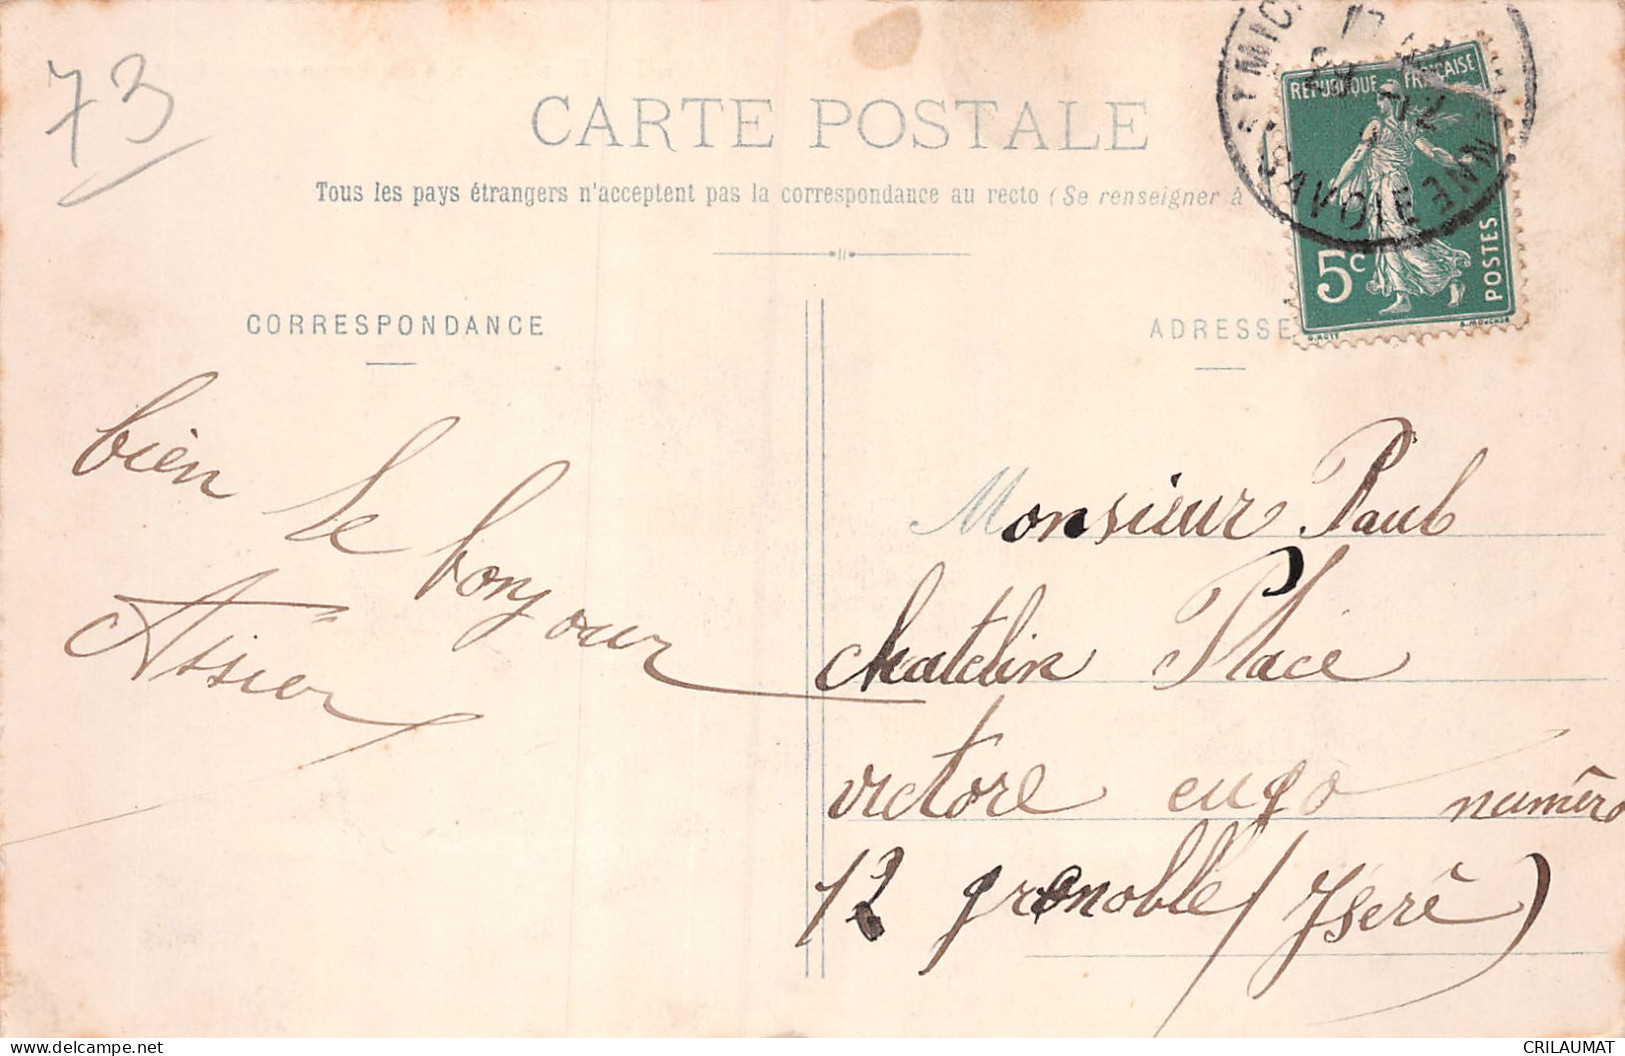 73
CARTE POSTALE
Tous les pays étrangers n'acceptent pas la correspondance au recto (Se renseigner à
RÉPUBLIQUE FRANÇAISE
5c
POSTES
O.ROTY
E.MOUCHON
SAVOIE
CORRESPONDANCE
ADRESSE
bien le bonjour
Assier
Monsieur Paul
chatelin Place
victore eugo numéro
12 grenoble (Isère)
delcampe.net
CRILAUMAT